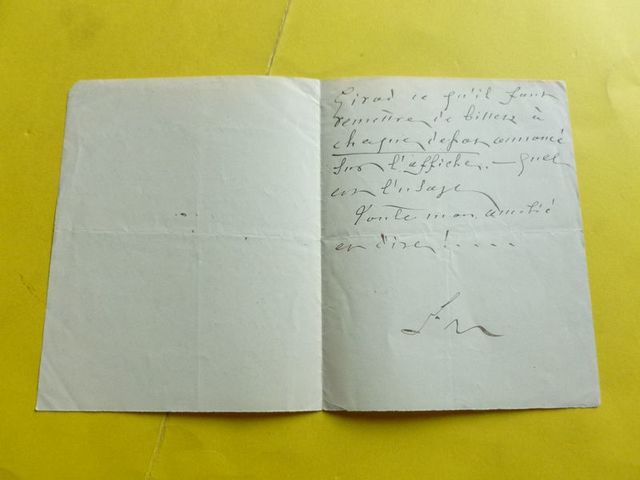 Girod ce qu'il faut
remettre de billets à
chaque depot annoncé
sur l'affiche. — quel
est l'usage
Toute mon amitié